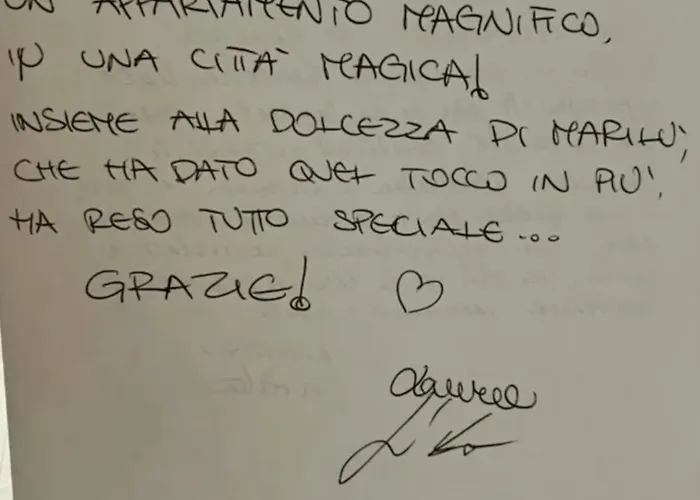 UN APPARTAMENTO MAGNIFICO,
IN UNA CITTÀ MAGICA!
INSIEME ALLA DOLCEZZA DI MARILÙ,
CHE HA DATO QUEL TOCCO IN PIÙ,
HA RESO TUTTO SPECIALE...
GRAZIE! ♡